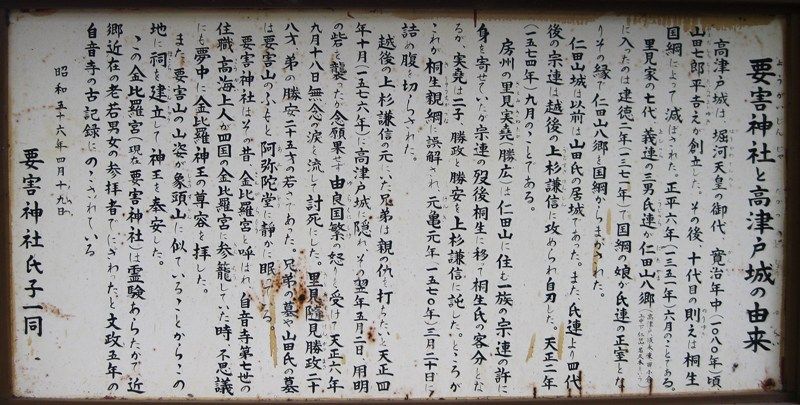 要害神社と高津戸城の由来
高津戸城は、堀河天皇の御代　寛治年中(一〇八〇年)頃
山田七郎平吉之が創立した。その後、十代目の則之は桐生
国綱によって滅ぼされた。正平六年(一三五一年)六月のことである。
里見家の七代　義連の三男氏連が仁田山八郷
に入ったのは建徳二年(一三七一年)で国綱の娘が氏連の正室とな
りその縁で仁田山八郷を国綱からまかされた。
仁田山城は以前は山田氏の居城であった。また、氏連より四代
後の宗連は越後の上杉謙信に攻められ自刃した。天正二年
(一五七四年)九月のことである。
房州の里見実堯(勝広)は仁田山に住む一族の宗連の許に
身を寄せていたが宗連の歿後桐生に移て桐生氏の客分とな
るが、実堯は二子、勝政と勝安を上杉謙信に託した。ところが
これが桐生親綱に誤解され、元亀元年一五七〇年、三月二十日に
詰め腹を切らされた。
越後の上杉謙信の元にいた兄弟は親の仇を打ちたいと天正四
年十月(一五七六年)に高津戸城に隠れ、その翌年五月二日、用明
の砦を襲ったが念願果せず由良国繁の怒りを受けて天正六年
九月十八日無念の涙を流して討死にした。里見随見勝政二十
八才、弟の勝安二十五才の若さであった。兄弟の墓や山田氏の墓
は要害山のふもと阿弥陀堂に静かに眠っている。
要害神社はその昔、金比羅宮と呼ばれ、自音寺第七世の
住職、高海上人が四国の金比羅宮に参籠していた時、不思議
にも夢中に金比羅神王の尊容を拝した。
また、要害山の山姿が象頭山に似ていることからこの
地に祠を建立して神王を奉安した。
この金比羅宮、現在要害神社には霊験あらたかで近
郷近在の老若男女の参拝者でにぎわったと文政五年の
自音寺の古記録にのこされている
昭和五十六年四月十九日
要害神社氏子一同